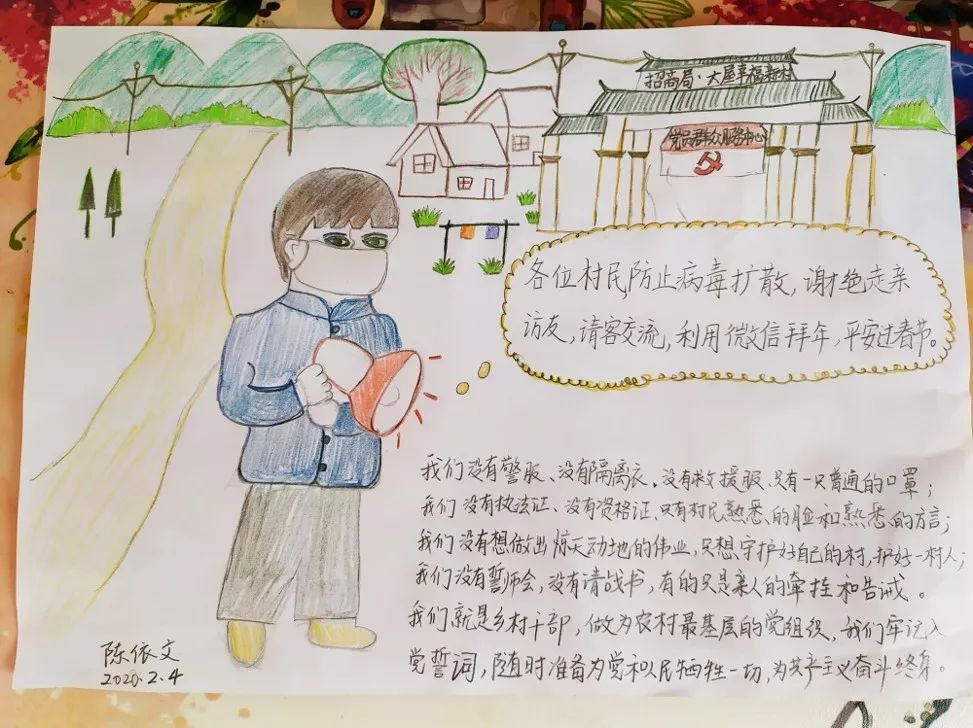 招商局·大屋幸福新村
党员群众服务中心
各位村民防止病毒扩散，谢绝走亲
访友，请客交流，利用微信拜年，平安过春节。
我们没有警服、没有隔离衣，没有救援服、只有一只普通的口罩；
我们没有执法证、没有资格证、只有村民熟悉的脸和熟悉的方言；
我们没有想做出惊天动地的伟业，只想守护好自己的村，护好一村人；
我们没有誓师会，没有请战书，有的只是亲人的牵挂和告诫。
我们就是乡村干部，做为农村最基层的党组织，我们牢记入
党誓词，随时准备为党和人民牺牲一切，为共产主义奋斗终身。
陈依文
2020.2.4